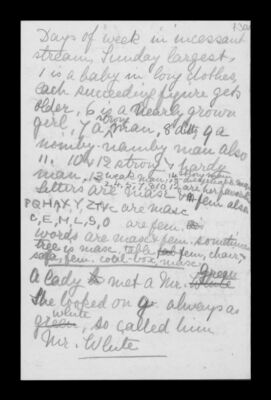 Days of week in incessant
stream, Sunday largest,
1 is a baby in long clothes,
each succeeding figure gets
older, 6 is a nearly grown
girl, 7 a strong man, 8 a
namby-namby man also
11. 10 & 12 strong & hardy
man, 13 weak man, 14
letters are masc & fem also
P Q H A X Y, Z T K C are masc
C, E, M, L, S, O are fem.
words are masc & fem. sometimes
tree is masc, table fem, chair,
sofa, fem. coal-box, masc.
A lady met a Mr. White Green
She looked on G. always as
green white, so called him
Mr. White